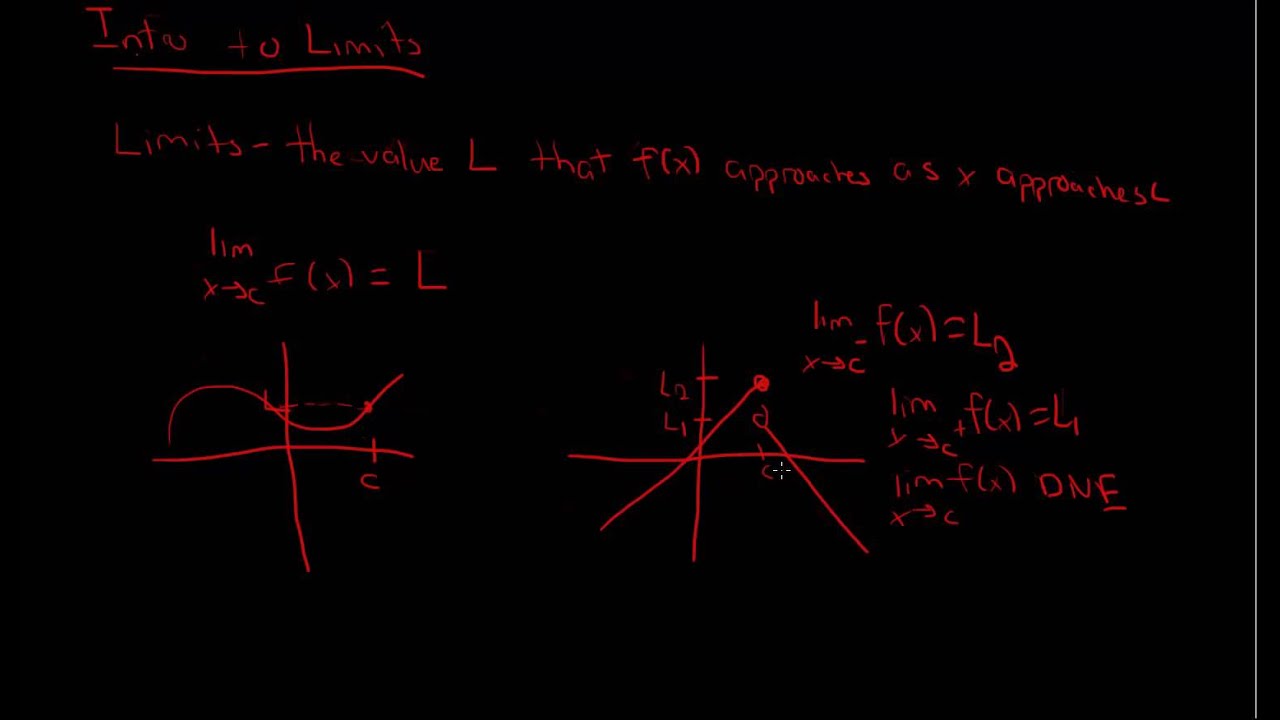 Intro to Limits
Limits - the value L that f(x) approaches as x approaches c
lim f(x) = L
x→c
L
c
L2
L1
c
lim f(x) = L2
x→c-
lim f(x) = L1
x→c+
lim f(x) DNE
x→c